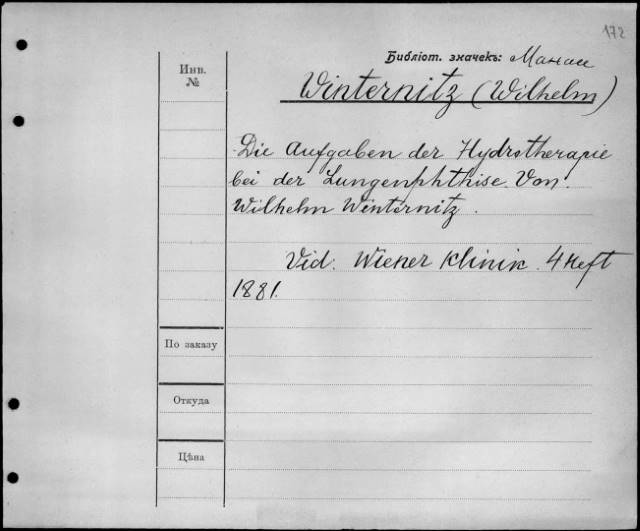 172
Библіот. значекъ:
Инв.
№
Winternitz (Wilhelm)
Die Aufgaben der Hydrotherapie
bei der Lungenphthise. Von.
Wilhelm Winternitz.
Vid. Wiener Klinik. 4 Heft
1881.
По заказу
Откуда
Цѣна